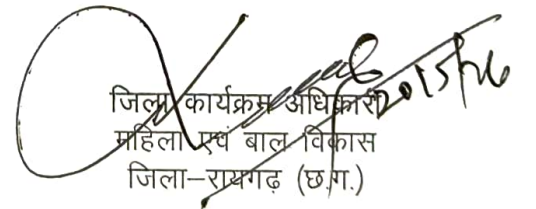 जिला कार्यक्रम अधिकारी
महिला एवं बाल विकास
जिला–रायगढ़ (छ.ग.)